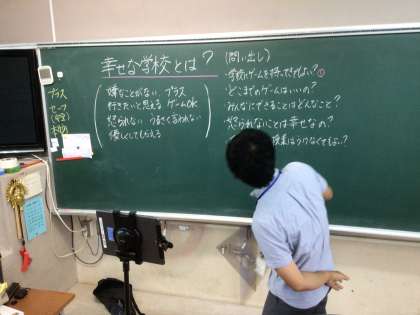 幸せな学校とは?
嫌なことがない プラス
行きたいと思える ゲームOK
怒られない うるさく言われない
優しくしてもらえる
プラス
セーフ
(問い出し)
・学校にゲームを持ってきてもよい?①
・どこまでのゲームはいいの?
・みんなにできることはどんなこと?
・怒られないことは幸せなの?
授業はうけなくてもよい?